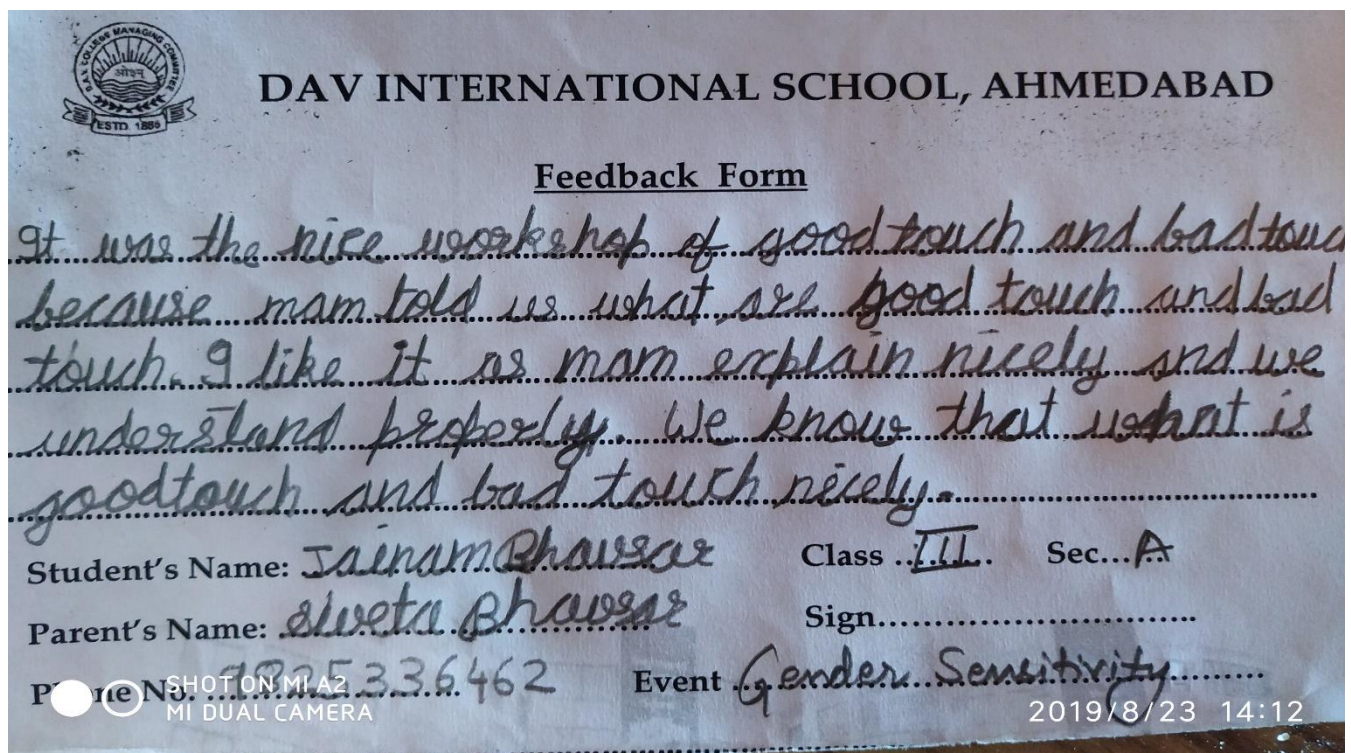 DAV COLLEGE MANAGING COMMITTEE
ओ३म्
ESTD. 1886
DAV INTERNATIONAL SCHOOL, AHMEDABAD
Feedback Form
It was the nice workshop of good touch and bad touc
because mam told us what are good touch and bad
touch. I like it as mam explain nicely and we
understand properly. We know that what is
goodtouch and bad touch nicely.
Student's Name: Jainam Bhavsar Class III Sec... A
Parent's Name: Sweta Bhavsar Sign...
Phone No. 336462 Event Gender Sensitivity
SHOT ON MI A2
MI DUAL CAMERA
2019/8/23 14:12